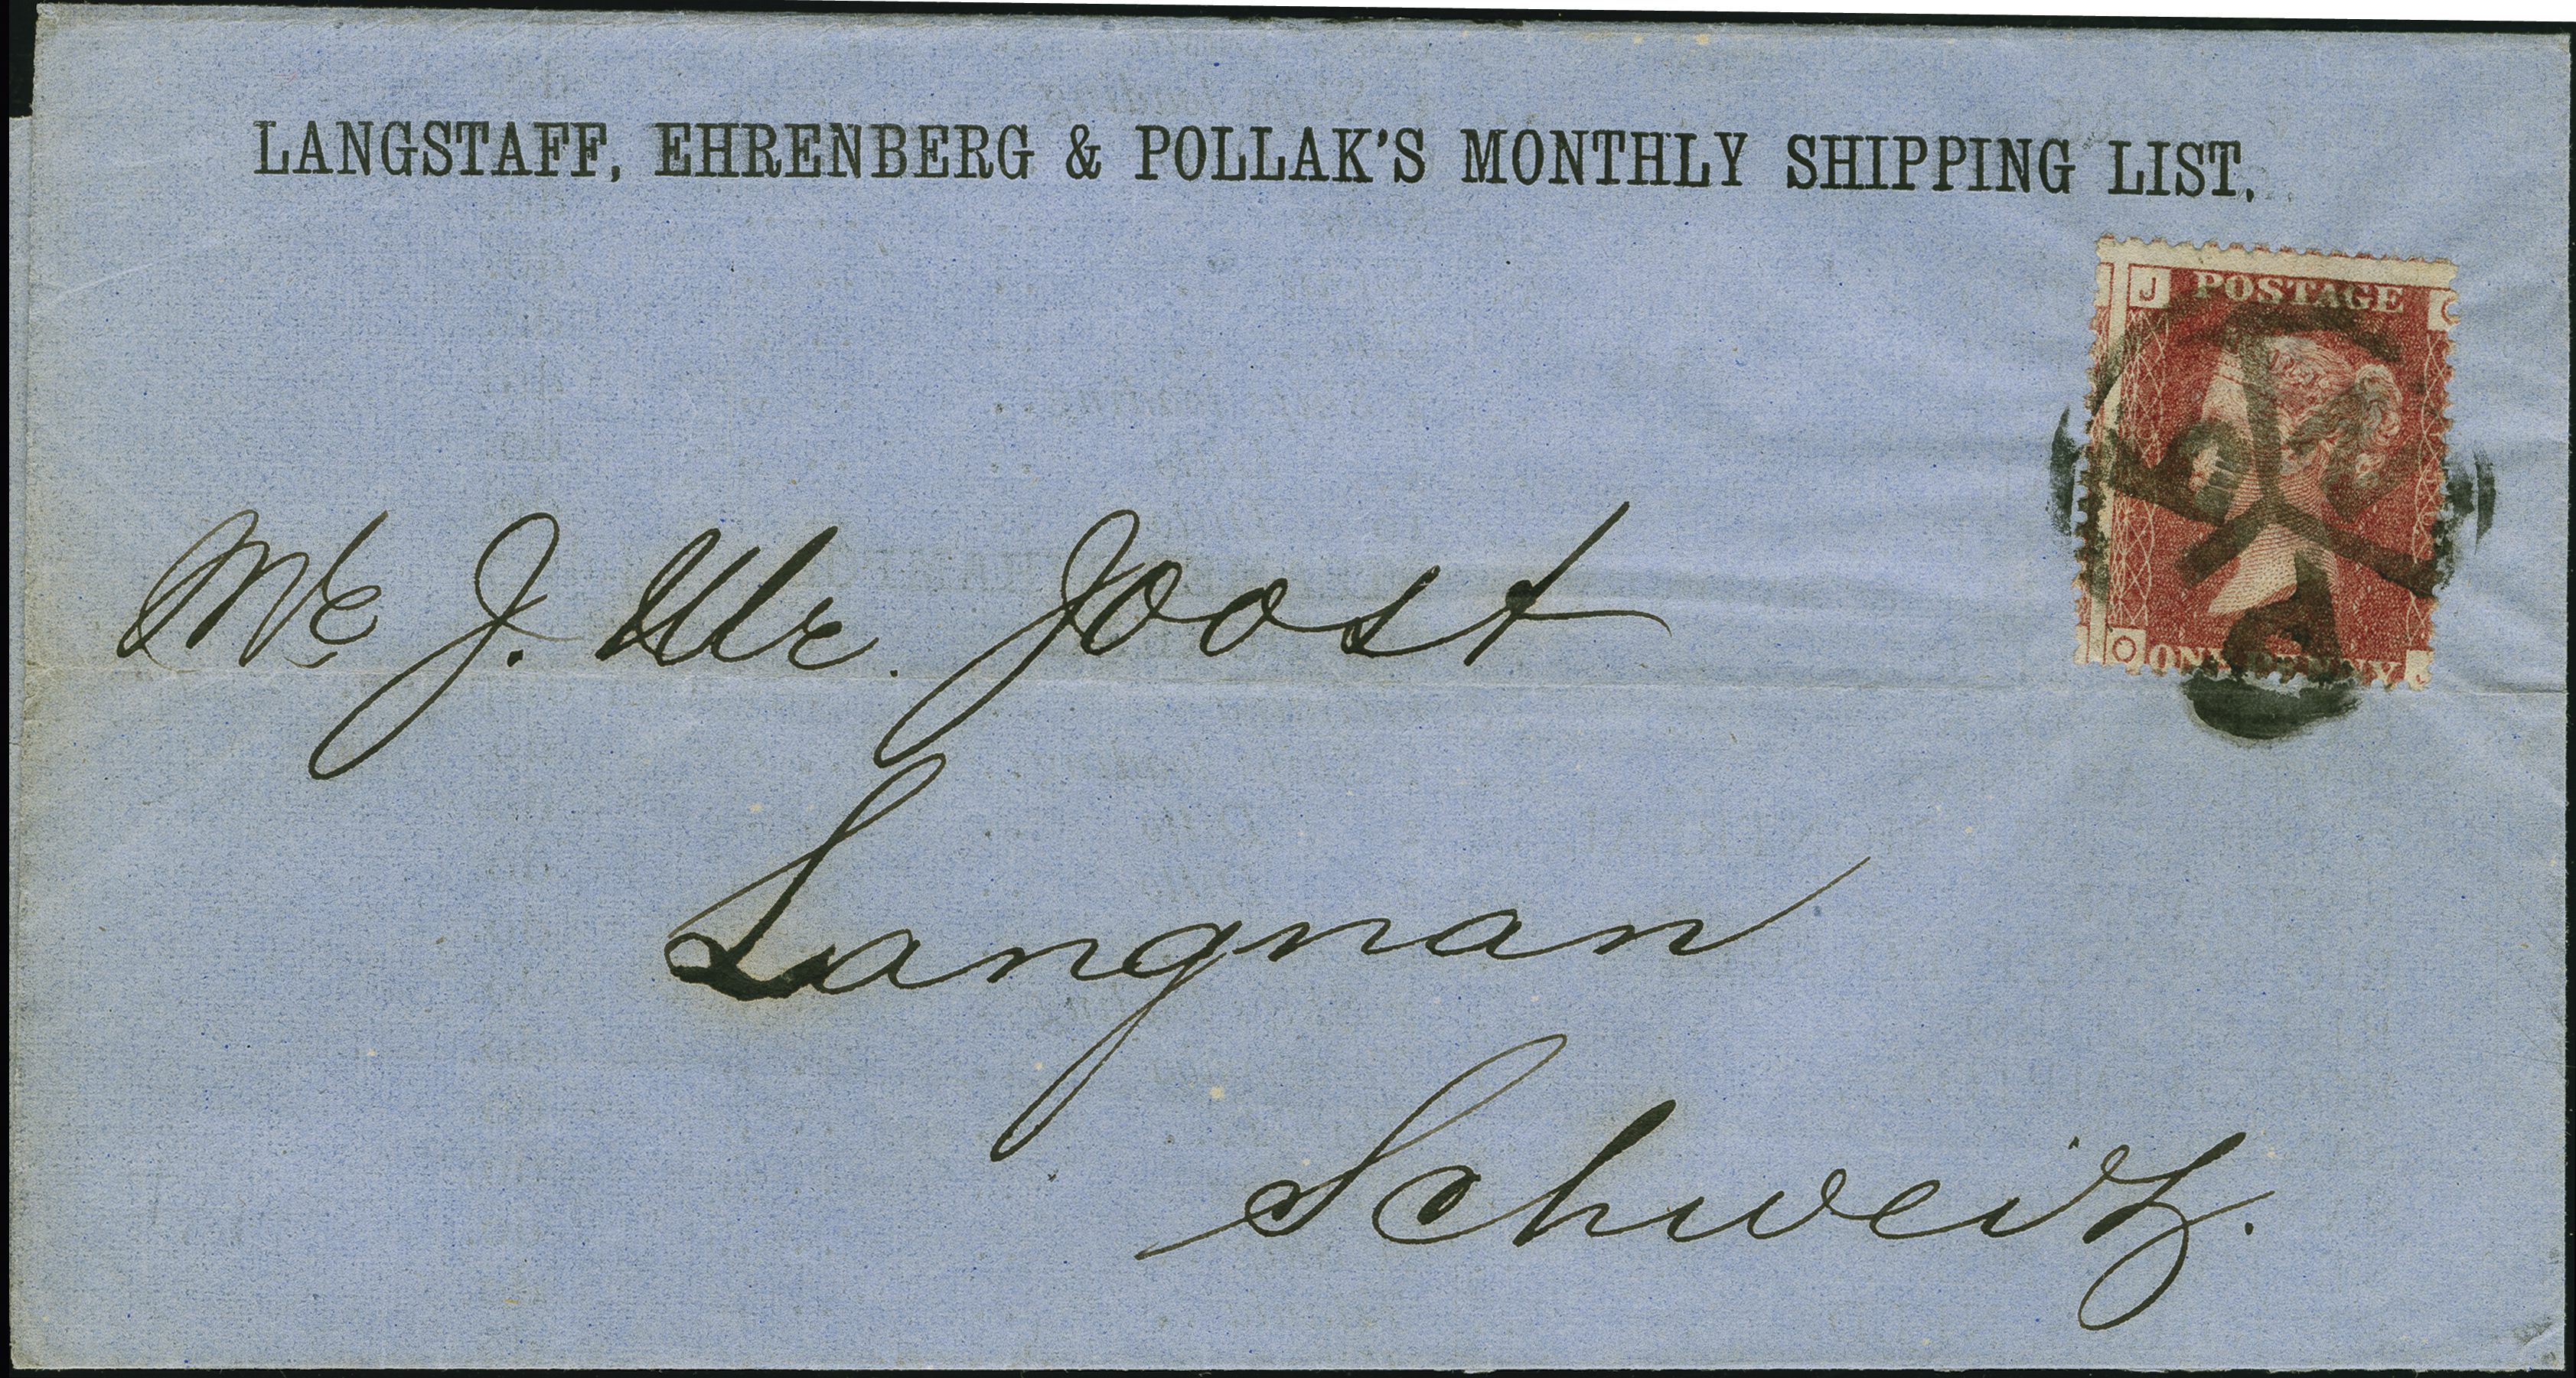 LANGSTAFF, EHRENBERG & POLLAK'S MONTHLY SHIPPING LIST.
J POSTAGE
O ONE PENNY
Mr J. Ulr. Joost
Langnan
Schweitz.